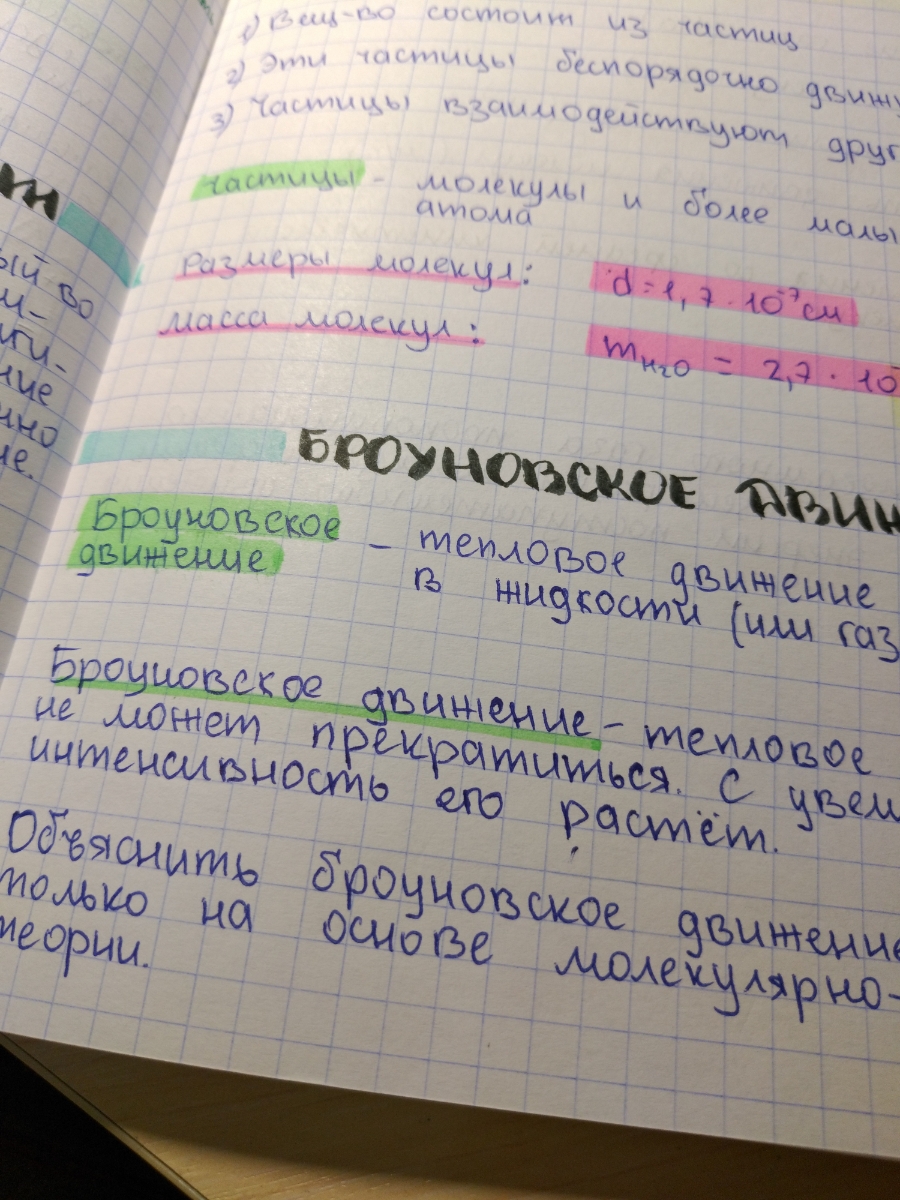 1) Вещ-во состоит из частиц
2) Эти частицы беспорядочно движу
3) Частицы взаимодействуют друг
частицы - молекулы и более малы
атома
Размеры молекул: d = 1,7 · 10⁻⁷ см
масса молекул: mн₂о = 2,7 · 10
БРОУНОВСКОЕ ДВИЖ
Броуновское
движение - тепловое движение
в жидкости (или газ
Броуновское движение - тепловое
не может прекратиться. С увел
интенсивность его растёт.
Объяснить броуновское движение
только на основе молекулярно-
теории.
ый во
ние
нно